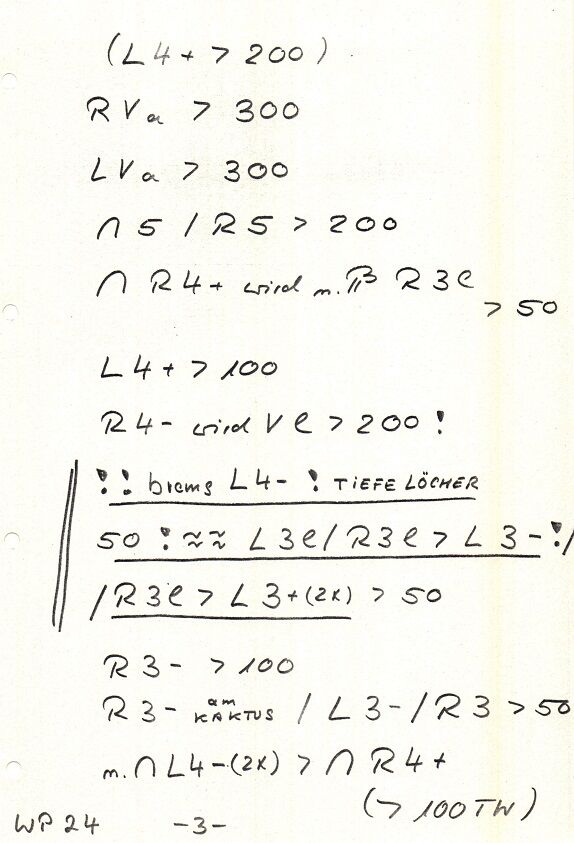 (L4+ > 200)
RVa > 300
LVa > 300
∩ 5 / R5 > 200
∩ R4+ wird m. R3l
> 50
L4+ > 100
R4- wird Vl > 200!
!! brems L4- ! TIEFE LÖCHER
50 ! ≈≈ L3l/R3l > L3-!/
/R3l > L3+(2x) > 50
R3- > 100
R3- am KAKTUS / L3-/R3 > 50
m. ∩ L4-(2x) > ∩ R4+
(> 100TW)
WP 24 -3-